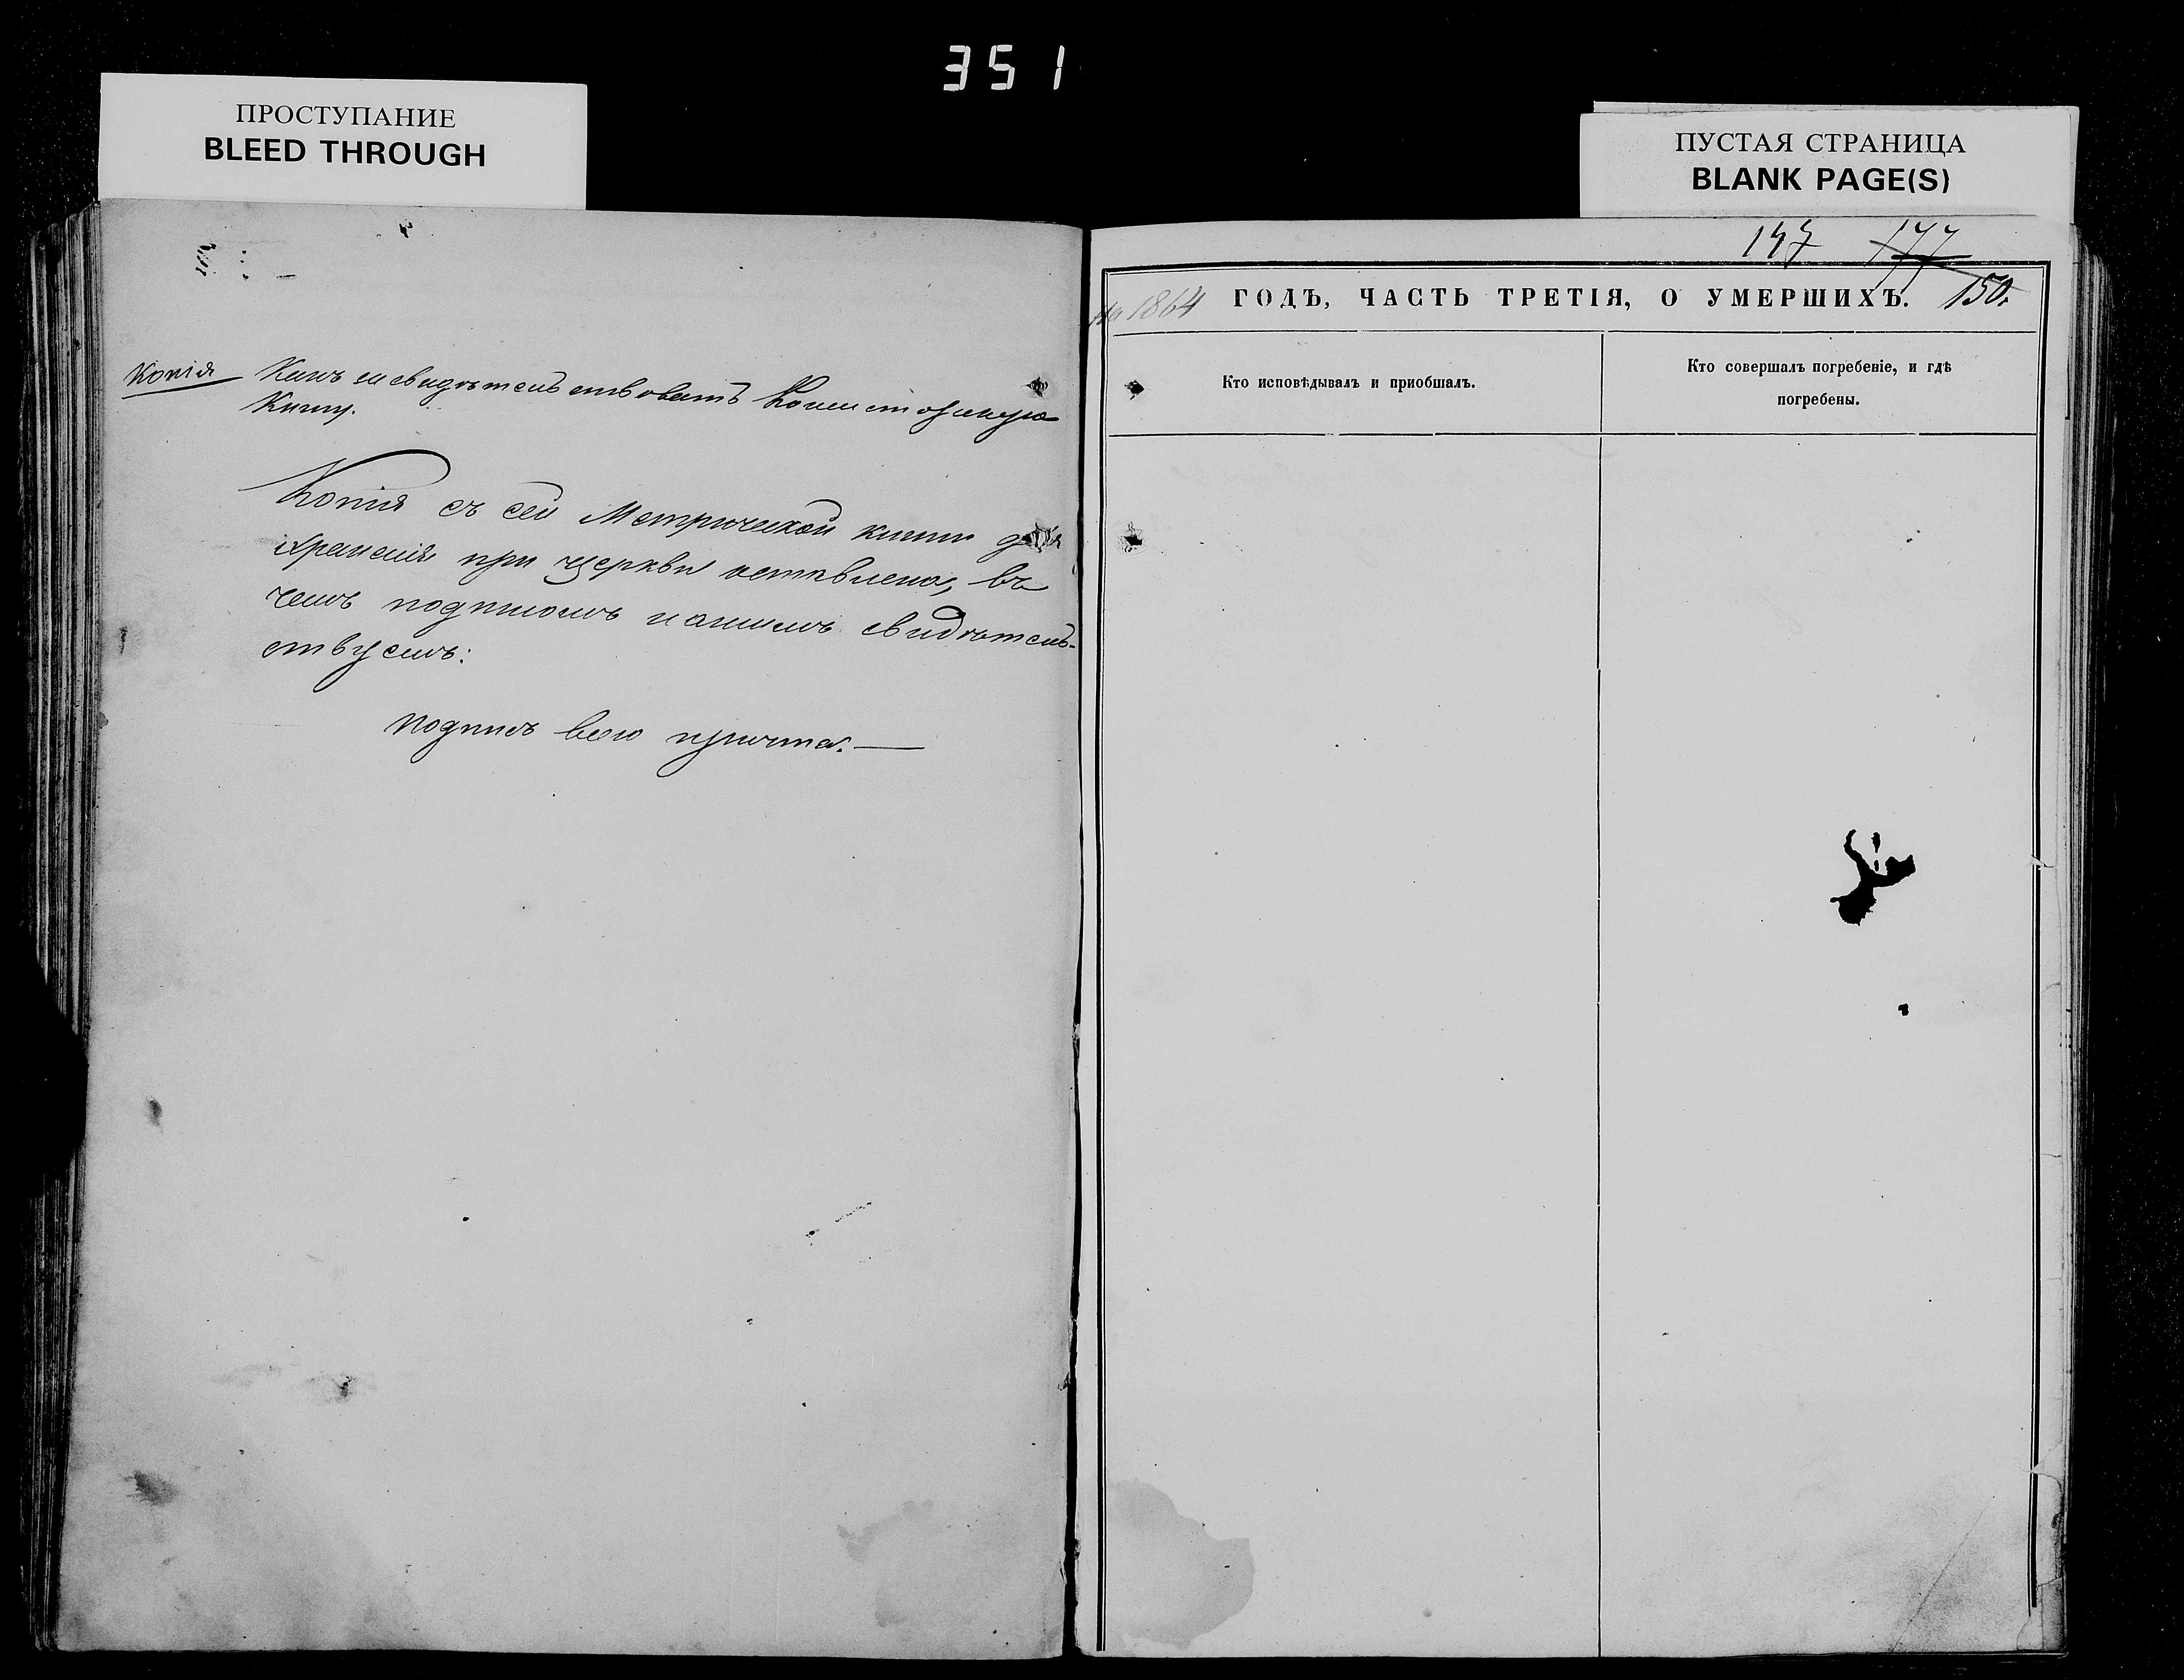 351
ПРОСТУПАНИЕ
BLEED THROUGH
ПУСТАЯ СТРАНИЦА
BLANK PAGE(S)
Копія
Какъ засвидѣтельствовать Консисторскую
Книгу.
Копія съ сей Метрической книги для
храненія при церкви оставлена, въ
чемъ подписомъ нашимъ свидѣтель-
ствуемъ:
подпись всего причта.
147 177
на 1864 ГОДЪ, ЧАСТЬ ТРЕТІЯ, О УМЕРШИХЪ. 150.
Кто исповѣдывалъ и пріобщалъ.
Кто совершалъ погребеніе, и гдѣ
погребены.